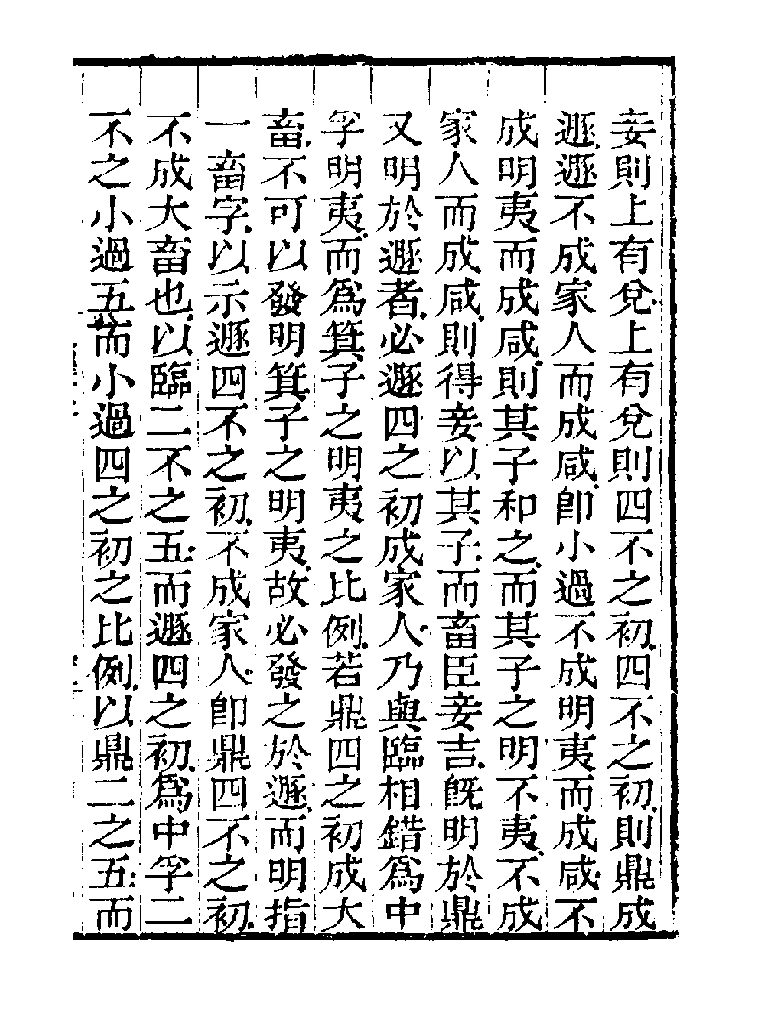 妾則上有兌上有兌則四不之初四不之初則鼎成
遯遯不成家人而成咸卽小過不成明夷而成咸不
成明夷而成咸則其子和之而其子之明不夷不成
家人而成咸則得妾以其子而畜臣妾吉旣明於鼎
又明於遯者必遯四之初成家人乃與臨相錯爲中
孚明夷而爲箕子之明夷之比例若鼎四之初成大
畜不可以發明箕子之明夷故必發之於遯而明指
一畜字以示遯四不之初不成家人卽鼎四不之初
不成大畜也以臨二不之五而遯四之初爲中孚二
不之小過五而小過四之初之比例以鼎二之五而